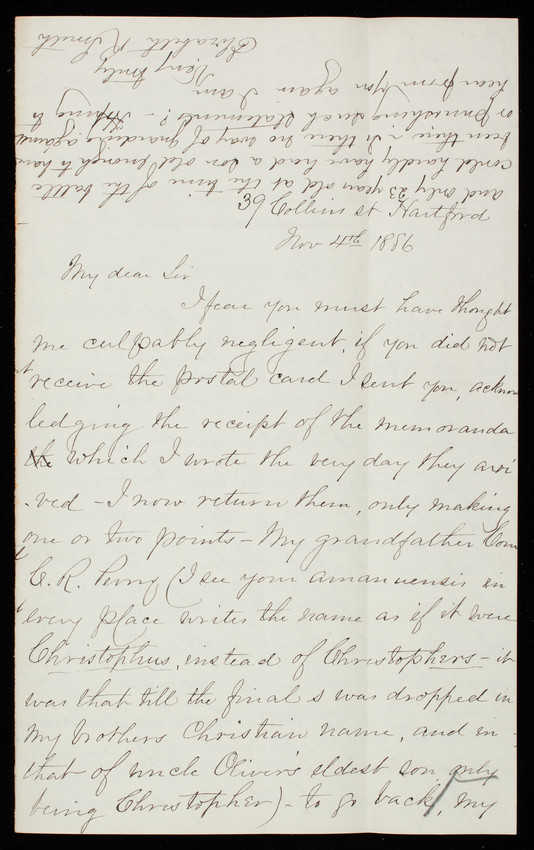 39 Collins st Hartford
Nov 4th 1886
My dear Sir
I fear you must have thought
me culpably negligent, if you did not
receive the postal card I sent you, acknow
ledging the receipt of the memoranda
the which I wrote the very day they arri
-ved - I now return them, only making
one or two points - My grandfather Com
C. R. Perry (I see your amanuensis in
every place writes the name as if it were
Christophus, instead of Christophers - it
was that till the final s was dropped in
my brothers Christian name, and in
that of uncle Oliver's eldest son only
being Christopher) - to go back, my
and only 23 years old at the time of the battle
could hardly have had a son old enough to have
been there - Is there no way of guarding against
or punishing such statements? - Hoping to
hear from you again I am
Very truly
Elizabeth R. Smith